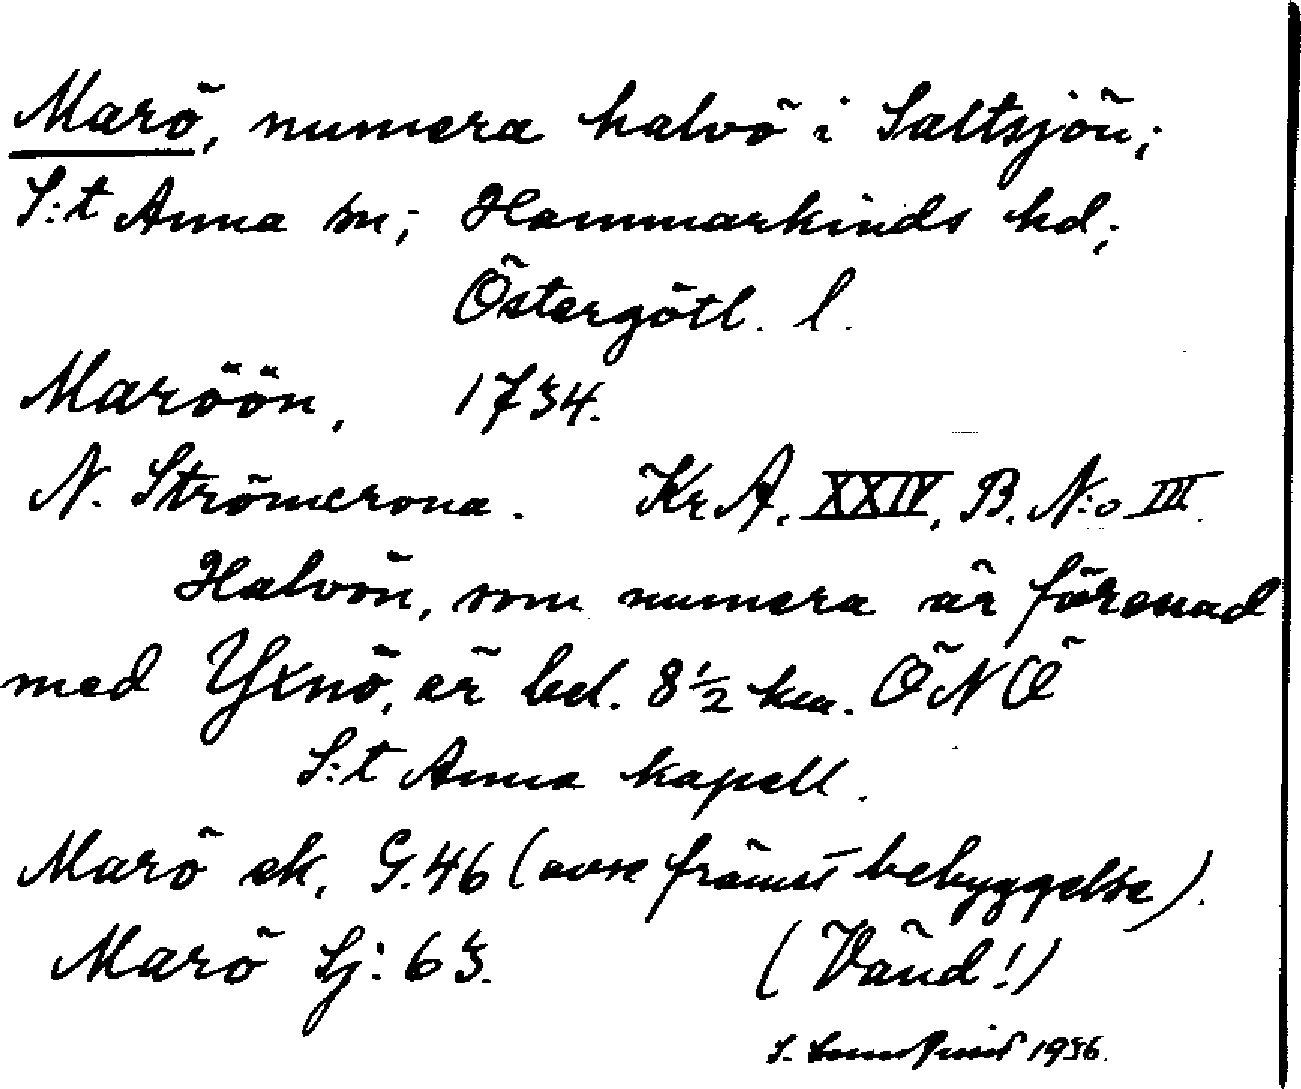 Marö, numera halvö i Saltsjön;
S:t Anna sn; Hammarkinds hd;
Östergötl. l.
Maröön, 1734.
N. Strömcrona. Kr. A. XXIV. B. N:o III.
Halvön, som numera är förenad
med Yxnö, är bel. 8 1/2 km. ÖNÖ
S:t Anna kapell.
Marö ek. G. 46 (avse främst bebyggelse).
Marö Sj: 63. (Vänd!)
1936.